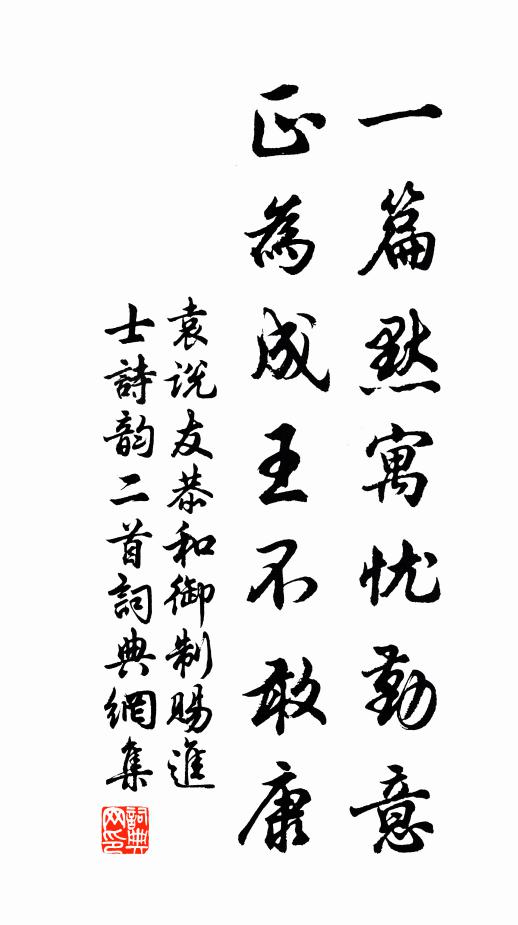 一篇默寓忧勤意
正為成王不敢康
袁说友恭和御制賜進
士詩韵二首詞典網集
詞典网印